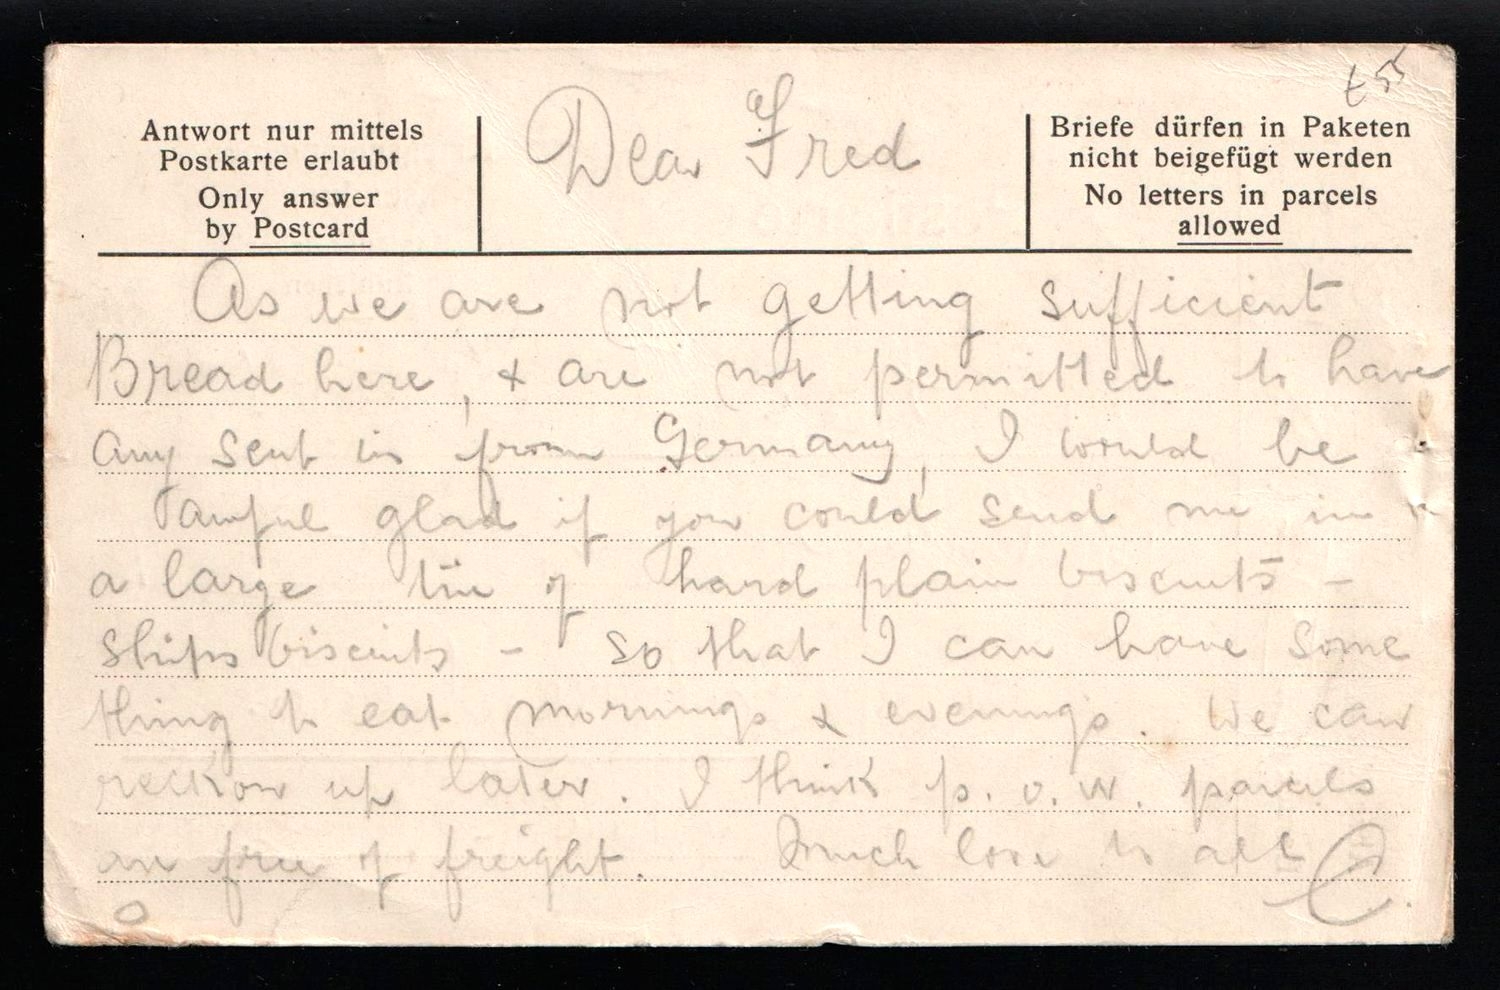 Antwort nur mittels
Postkarte erlaubt
Only answer
by Postcard
Dear Fred
Briefe dürfen in Paketen
nicht beigefügt werden
No letters in parcels
allowed
£55
As we are not getting sufficient
Bread here, & are not permitted to have
any sent in from Germany, I would be
awful glad if you could send me in
a large tin of hard plain biscuits -
ships biscuits - so that I can have some
thing to eat mornings & evenings. We can
reckon up later. I think p.o.w. parcels
are free of freight. Much love to all C.